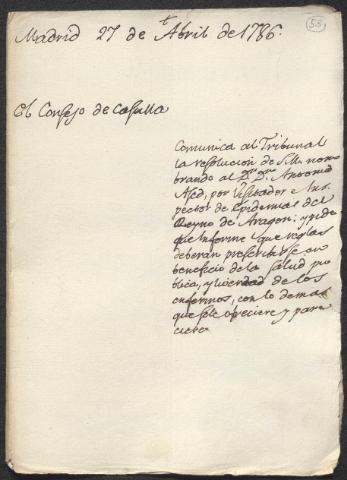 58
Madrid 27 de Abril de 1786.
El Consejo de Castilla
Comunica al Tribunal
la resolucion de S.M. nom
brando al Dr. Dn. Antonio
por Visitador e Ins
pector de Epidemias del
Reyno de Aragon; y pide
que Informe que reglas
deberan prescribirse en
beneficio de la Salud pu
blica, y de los
enfermos, con lo demas
que se le ofreciere y pare
ciere